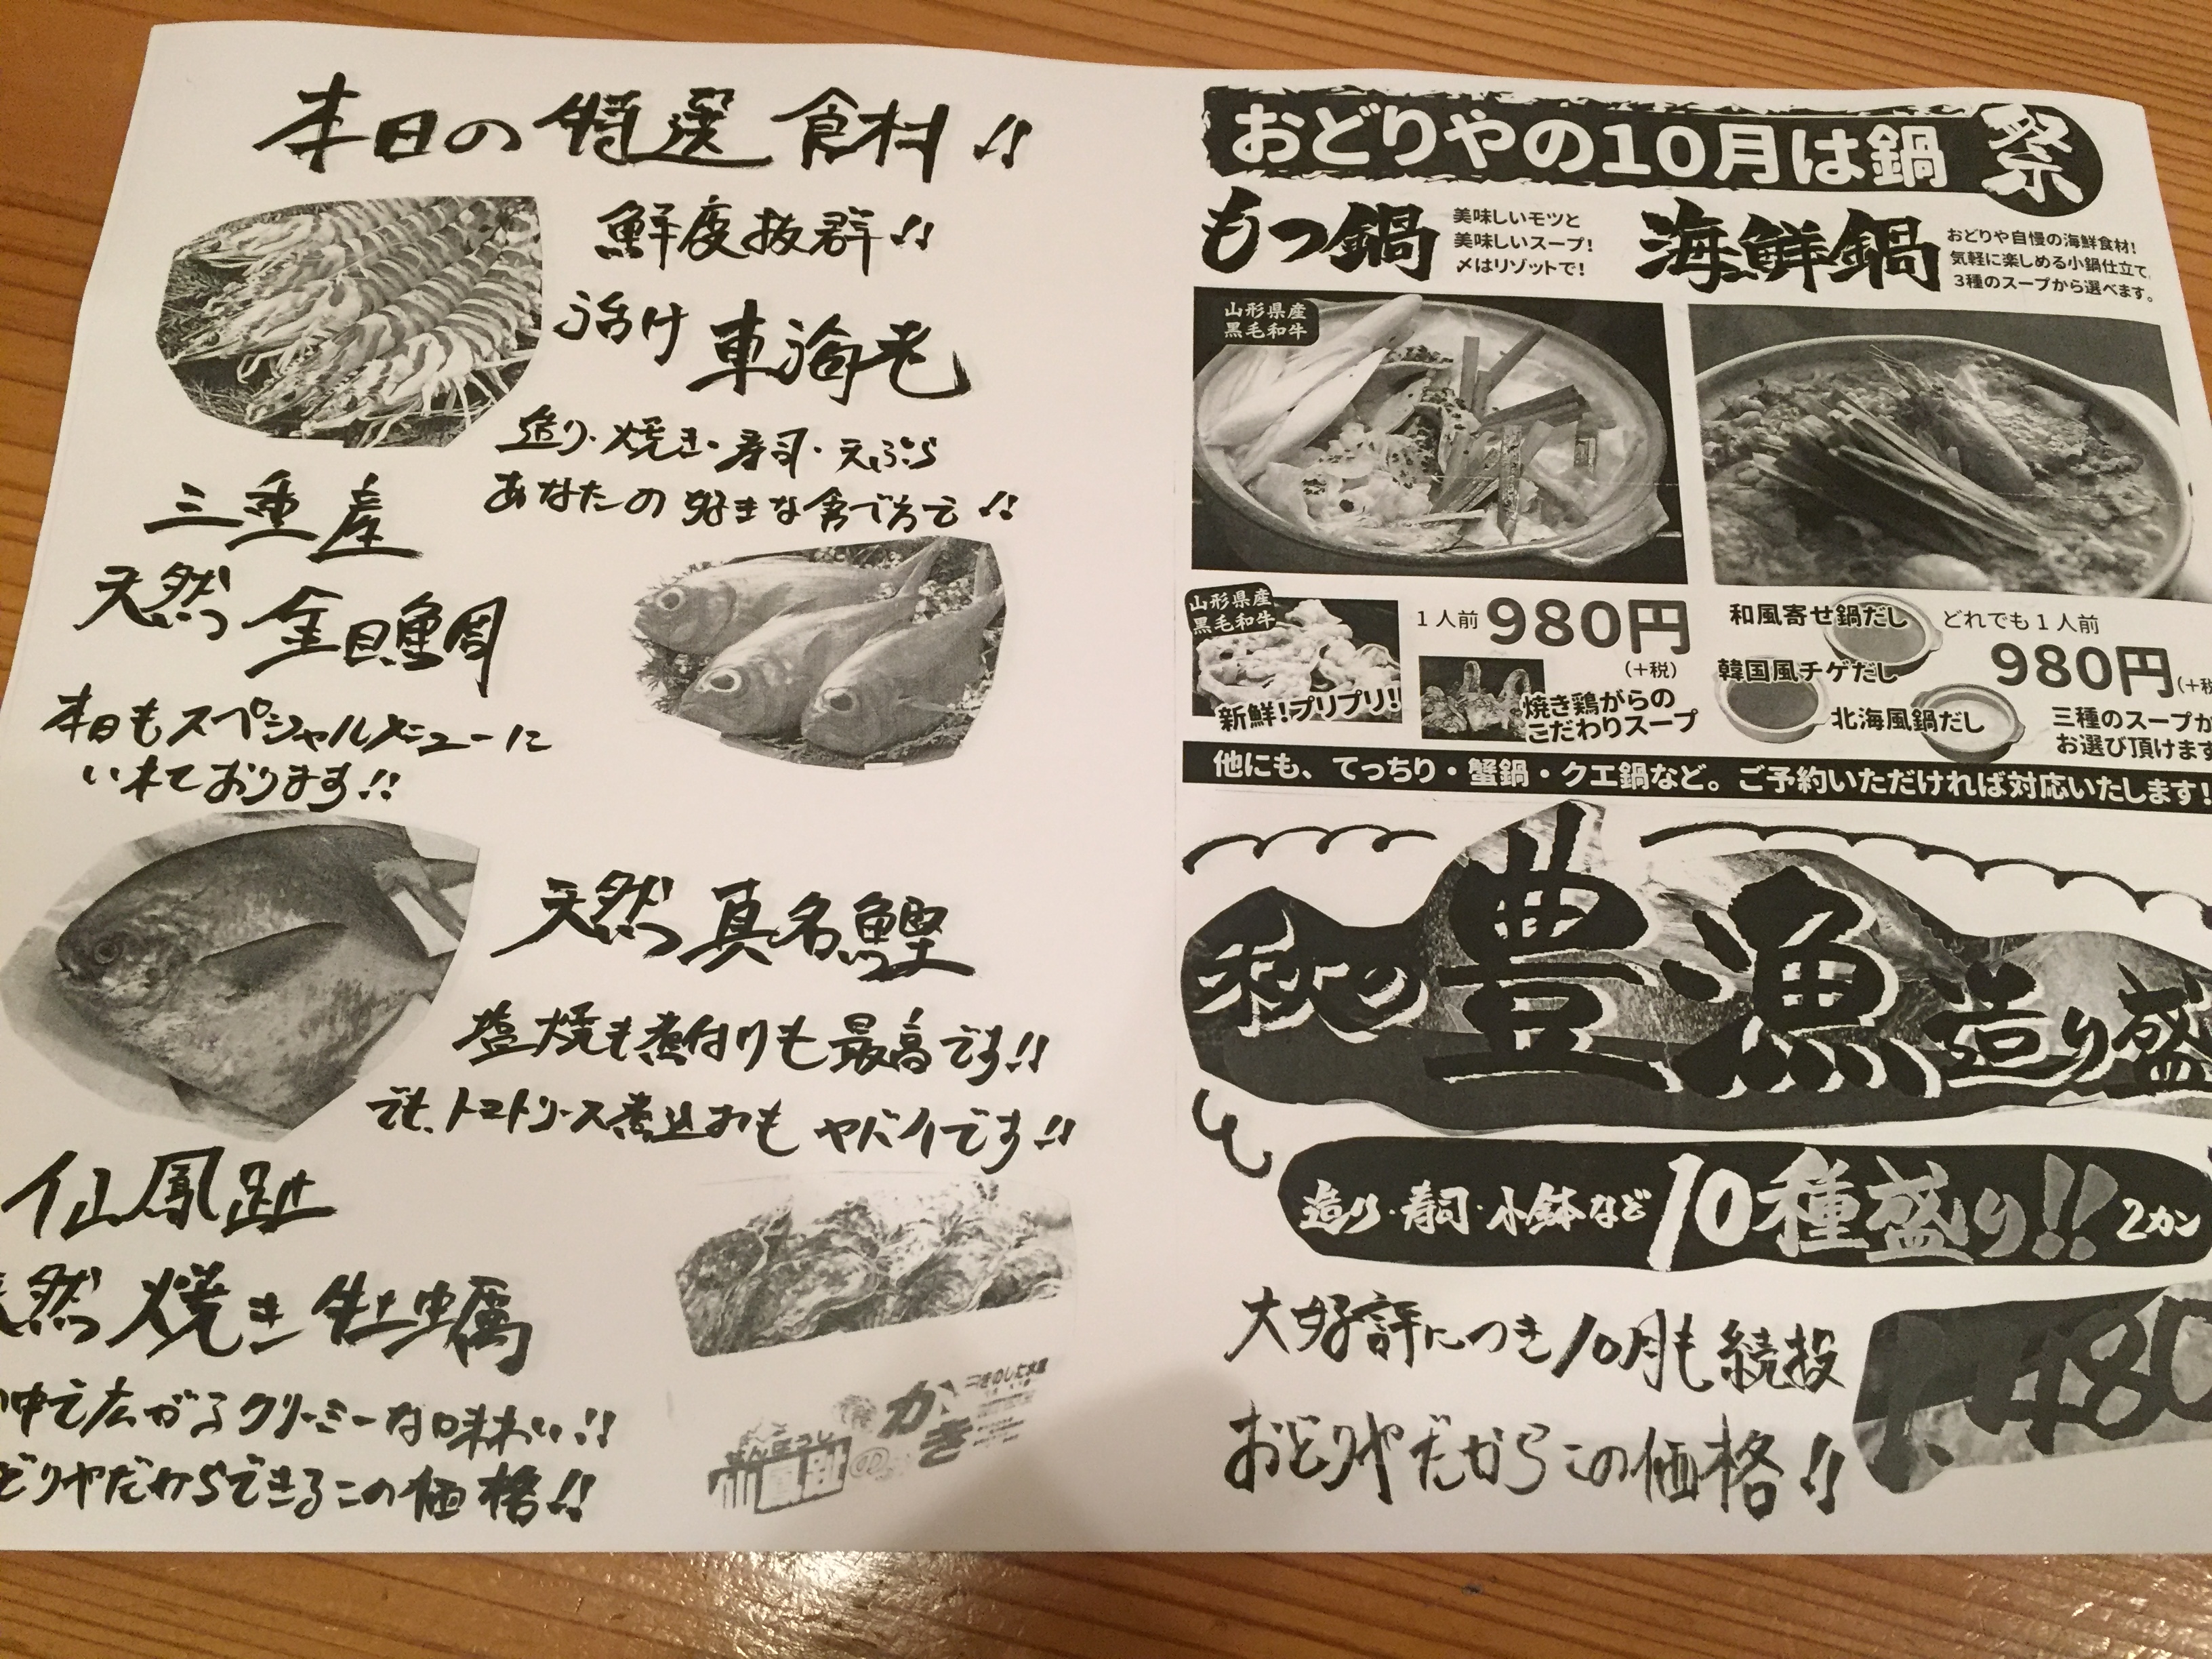 本日の特選食材!!
鮮度抜群!!
活け車海老
造り・焼き・寿司・天ぷら
あなたの好きな食べ方で!!
三重産
天然金目鯛
本日もスペシャルメニューに
いれております!!
天然真名鰹
塩焼も煮付けも最高です!!
でも、トマトソース煮込みもヤバイです!!
仙鳳趾
天然焼き牡蠣
中で広がるクリーミーな味わい!!
どりやだからできるこの価格!!
仙鳳趾のかき
おどりやの10月は鍋祭
もつ鍋
美味しいモツと
美味しいスープ!
〆はリゾットで!
海鮮鍋
おどりや自慢の海鮮食材!
気軽に楽しめる小鍋仕立て。
3種のスープから選べます。
山形県産
黒毛和牛
山形県産
黒毛和牛
新鮮!プリプリ!
1人前980円
(+税)
焼き鶏がらの
こだわりスープ
和風寄せ鍋だし
韓国風チゲだし
北海風鍋だし
どれでも1人前
980円(+税
三種のスープか
お選び頂けます
他にも、てっちり・蟹鍋・クエ鍋など。ご予約いただければ対応いたします!
秋の豊漁造り盛
造り・寿司・小鉢など10種盛り!!2カン
大好評につき10月も続投
おどりやだからこの価格!!
1,480